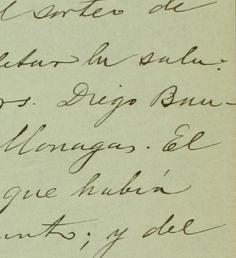 l sorteo de
letar lu salu:
rs. Diego Bau-
Monagas. El
que había
unto; y del